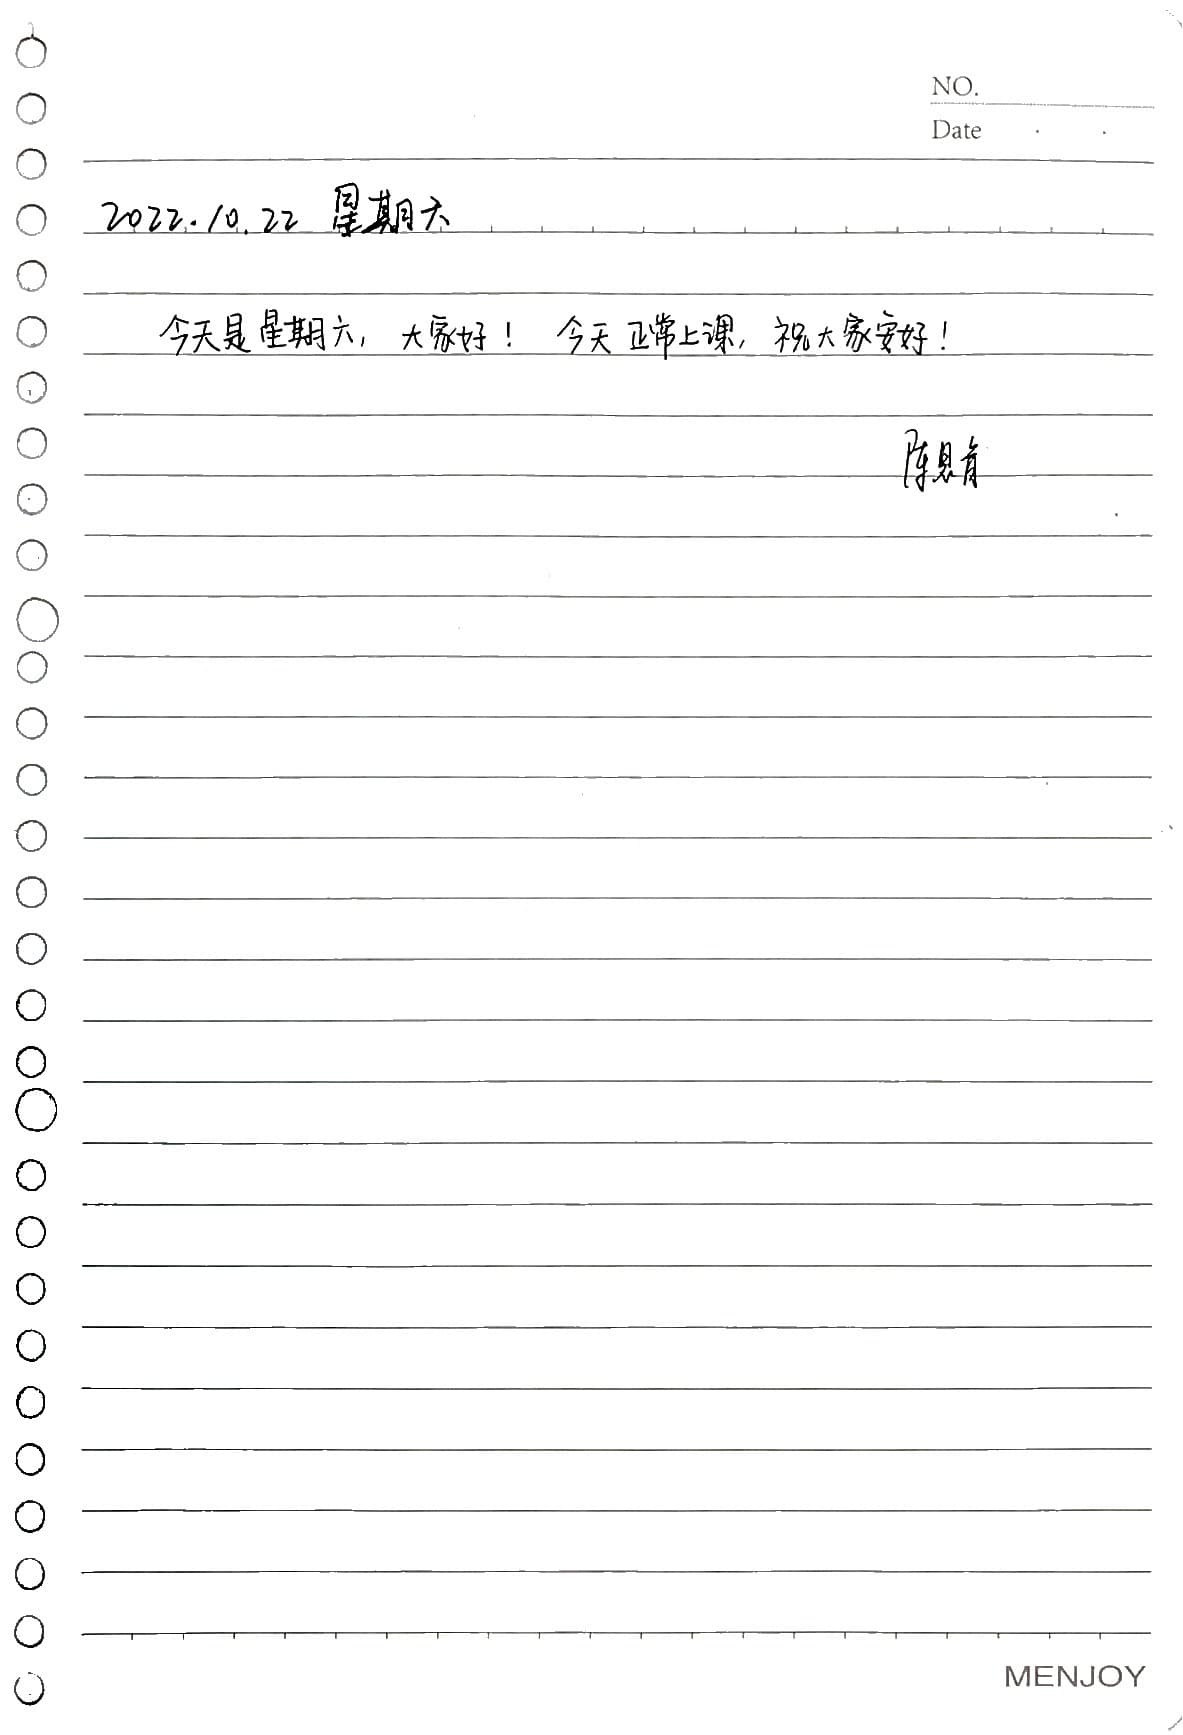 NO.
Date . .
2022.10.22 星期六
今天是星期六, 大家好! 今天正常上课, 祝大家安好!
陈思肓
MENJOY